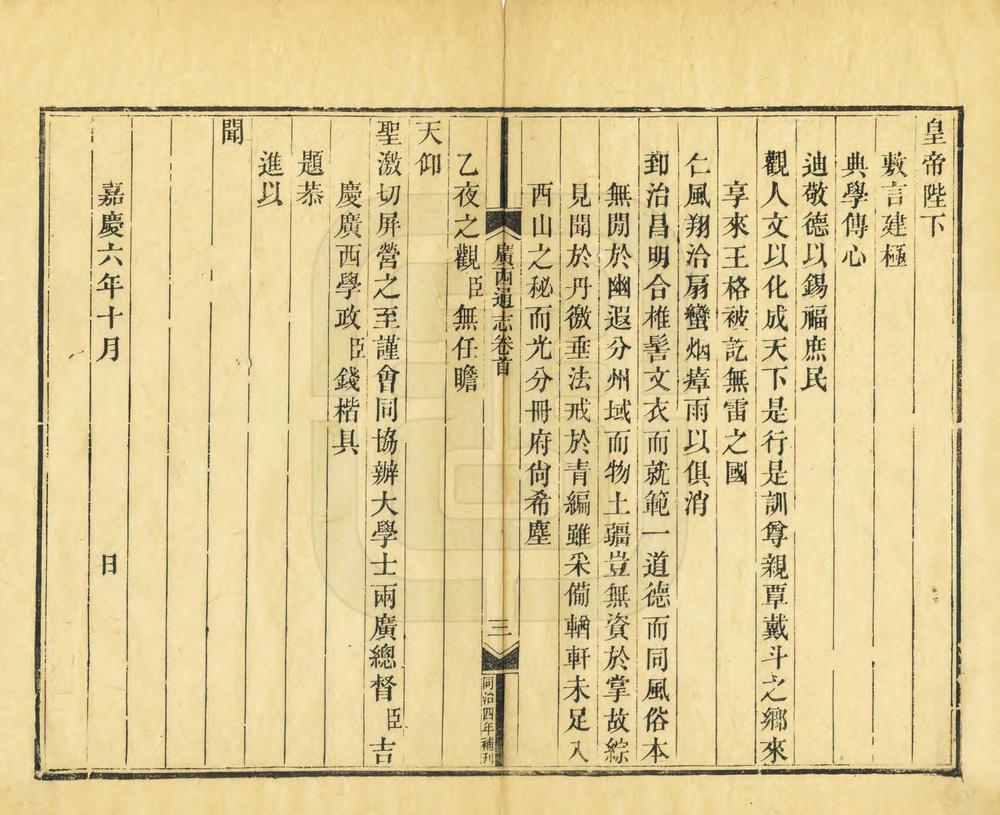 皇帝陛下
敷言建極
典學傳心
迪敬德以錫福庶民
觀人文以化成天下是行是訓尊親覃戴斗之鄉來
享來王格被訖無雷之國
仁風翔洽扇蠻烟瘴雨以俱消
郅治昌明合椎髻文衣而就範一道德而同風俗本
無閒於幽遐分州域而物土疆豈無資於掌故綜
見聞於丹徼垂法戒於青編雖采備輶軒未足入
西山之秘而光分冊府尙希塵
廣西通志卷首
三
同治四年補刊
乙夜之觀臣無任瞻
天仰
聖激切屏營之至謹會同協辦大學士兩廣總督臣吉
慶廣西學政臣錢楷具
題恭
進以
聞
嘉慶六年十月 日